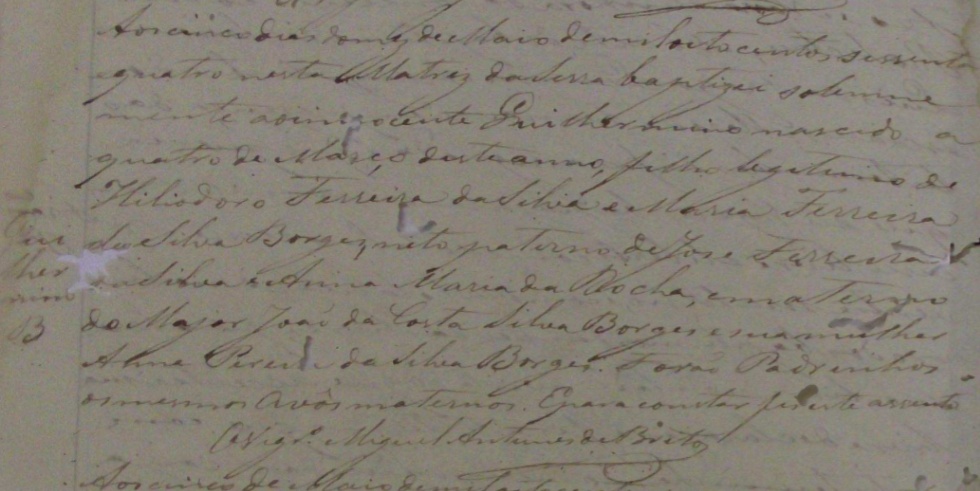 Aos cinco dias do mez de Maio de mil oito centos sessenta
e quatro nesta Matriz da Serra baptizei solemne
mente ao innocente Guilhermino nascido a
quatro de Março deste anno, filho legitimo de
Hiliodoro Ferreira da Silva e Maria Ferreira
da Silva Borges, neto paterno de Jose Ferreira
da Silva e Anna Maria da Rocha, e materno
do Major Joaõ da Costa Silva Borges e sua mulher
Anna Pereira da Silva Borges. Foraõ Padrinhos
os mesmos Avós maternos. E para constar fis este assento
O Vigr.º Miguel Antunes de Brito
Gui
lher
mino
B
Aos cinco de Maio de mil oito centos